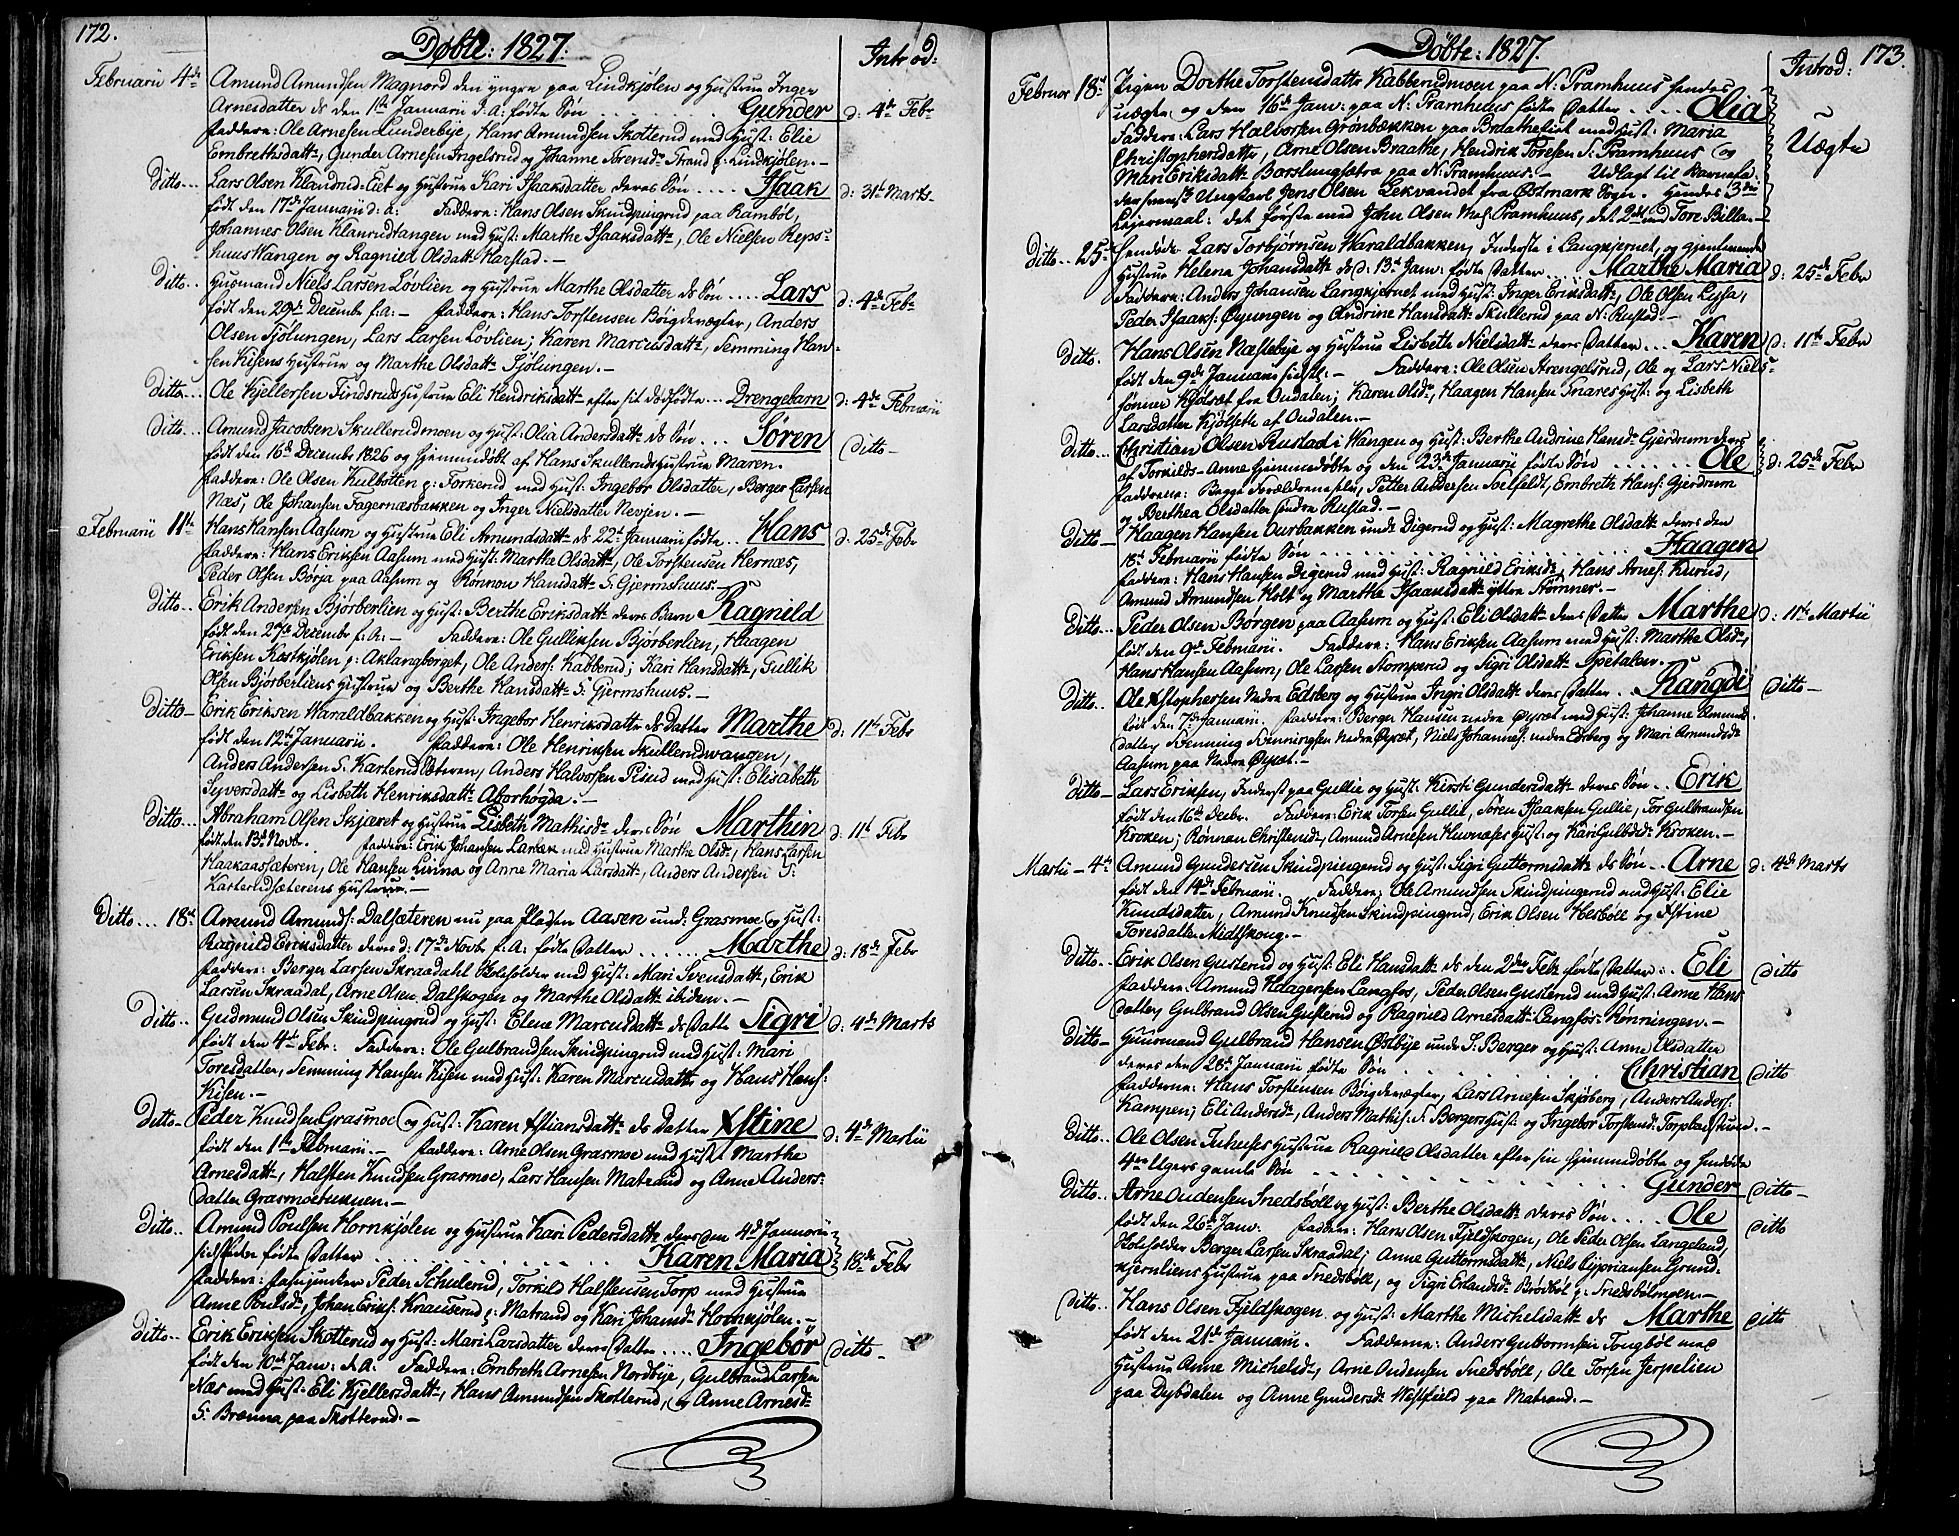 172.
Døbte: 1827.
Introd:
Februarii 4de Amund Amundsen Magnord den yngre paa Lindkjølen og Hustrue Inger
Arnesdatter ds den 1ste Januarii d. A: fødte Søn Gunder d: 4de Febr
Faddere: Ole Arnesen Lunderbye, Hans Amundsen Skotterud med Hust: Elie
Embrethsdattr, Gunder Arnesen Ingelsrud og Johanne Torensdr Strand p: Lindkjølen.-
Ditto... Lars Olsen Klanrud-Eiet og Hustrue Kari Isaaksdatter deres Søn .... Isaak d: 31te Marts-
født den 17de Januarii d: a: Faddere: Hans Olsen Skindpingrud paa Rambøl,
Johannes Olsen Klanrudtangen med Hust: Marthe Isaaksdattr, Ole Nielsen Reps-
huus Wangen og Ragnild Olsdattr Harstad.-
Ditto.. Husmand Niels Larsen Løvlien og Hustrue Marthe Olsdatter ds Søn .... Lars d: 4de Febr
født den 29de Decembr f: A:- Faddere: Hans Torstensen Böigdevægter, Anders
Olsen Sjølungen, Lars Larsen Løvlien; Karen Marcusdattr, Semming Han-
sen Kisens Hustrue og Marthe Olsdattr Sjölungen.-
Ditto... Ole Kjellersen Findsruds Hustrue Eli Hendriksdattr efter sit dødfødte... Drengebarn d: 4de Februarii
Ditto... Amund Jacobsen Skullerudmoen og Hust: Olia Andersdattr ds Søn ... Søren Ditto-
født den 16de Decembr 1826 og hjemmedøbt af Hans Skulleruds Hustrue Maren.
Faddere: Ole Olsen Kulbotten p: Forkerud med Hust: Ingebor Olsdatter, Berger Larsen
Næs, Ole Johansen Fagernæsbakken og Inger Nielsdatter Nevjen.-
Februarii 11te Hans Hansen Aasum og Hustrue Eli Amundsdattr ds 22de Januarii fødte .. Hans d: 25de Febr
Faddere: Hans Eriksen Aasum med Hust: Martha Olsdattr, Ole Torstensen Hernæs,
Peder Olsen Børja paa Aasum og Rønnou Hansdattr S: Gjermshuus.-
Ditto.. Erik Andersen Bjørberlien og Hust: Berthe Eriksdattr deres Barn Ragnild
født den 27de Decembr f: A:- Faddere: Ole Gulliksen Bjørberlien, Haagen
Eriksen Kastkjølen p: Aklangberget, Ole Anders: Kabberud; Kari Hansdattr, Gullik
Olsen Bjørberliens Hustrue og Berthe Hansdattr S: Gjermshuus.-
Ditto- Erik Eriksen Waraldbakken og Hust: Ingebor Henriksdattr ds Datter Marthe d: 11te Febr
født den 12te Januarii. Faddere: Ole Henriksen Skullerudwangen,
Anders Andersen S. Karterud Sæteren, Anders Halvorsen Pisud med Hust: Elisabeth
Syversdattr og Lisbeth Henriksdattr Aborhøgda.-
Ditto... Abraham Olsen Skjæret og Hustrue Lisbeth Mathisdr deres Søn Marthin d: 11te Febr
født den 13de Novbr. Faddere: Erik Johansen Larbæk med Hustrue Marthe Olsdr, Hans Larsen
Haakaassæteren, Ole Hansen Linna og Anne Maria Larsdattr, Anders Andersen S:
Karterudsæterens Hustrue.-
Ditto... 18de Amund Amunds: Dalsæteren nu paa Pladsen Aasen und: Grasmoe og Hust:
Ragnild Eriksdatter deres d: 17de Novbr f: A: fødte Datter ...... Marthe d: 18de Febr
Faddere: Berger Larsen Skraadahl Skoleholder med Hust: Mari Svensdattr, Erik
Larsen Skraadal, Arne Olsen Dalskogen og Marthe Olsdattr ibidem.-
Ditto.. Gudmund Olsen Skindpingrud og Hust: Elene Marcusdattr ds Dattr Sigri d: 4de Marts
født den 4de Febr: Faddere: Ole Gulbrandsen Skindpingrud med Hust: Mari
Toresdatter, Semming Hansen Kisen med Hust: Karen Marcusdattr og Hans Hans:
Kisen.-
Ditto- Peder Knudsen Grasmoe og Hust: Karen Xstiansdattr ds Datter Xstine d: 4de Martii
født den 1ste Februarii- Faddere: Arne Olsen Grasmoe med Hust: Marthe
Arnesdattr, Halsten Knudsen Grasmoe, Lars Hansen Matrand og Anne Anders-
datter Grasmoetuknen.-
Ditto.. Amund Poulsen Hornkjølen og Hustrue Kari Pedersdattr deres den 4de Januarii
sidstleden fødte Datter Karen Maria 18de Febr
Faddere: Fasujunker Peder Schulerud, Torkild Halstensen Torp med Hustrue
Anne Poulsdr, Johan Eriks: Knauserud p: Matrand og Kari Johansdr Hornkjølen.-
Ditto.. Erik Eriksen Skotterud og Hust: Mari Larsdatter deres Datter .... Ingebor Ditto-
født den 10de Janv: d. A: Faddere: Embreth Arnesen Nordbye, Gulbrand Larsen
Næs med Hust: Eli Kjellersdattr, Hans Amundsen Skotterud, og Anne Arnesdr
S: Brænna paa Skotterud.-
Døbte: 1827.
Introd: 173.
Februar 18de Pigen Dorthe Torstensdattr Kabberudmoen paa N: Pramhuus hendes
uægte og den 16de Janv: paa N: Pramhuus fødte Datter Olia Uægte
Faddere: Lars Halvorsen Grønbækken paa Braatheeiet med Hust: Maria
Christophersdattr, Arne Olsen Braathe, Hendrik Toresen S: Pramhuus og
Mari Eriksdattr Borslungsætra paa N: Pramhuus.- Udlagt til Barnefad-
der svensk Ungkarl Jens Olsen Lekvandet fra Østmark Sogn. Hendes 3die
Lejermaal: det første med John Olsen Pramhuus, det 2det med Tore Billa.-
Ditto.. 25de Lars Torbjørnsen Waraldbakken, Inderste i Langkjernet, og gjenlevende
Hustrue Helena Johansdattr ds d: 13de Janv: fødte Datter ... Marthe Maria d: 25de Febr
Faddere: Anders Johansen Langkjernet med Hust: Inger Eriksdattr, Ole Olsen Lysa,
Peder Isaaks: Øyungen og Andrine Hansdattr Skullerud paa N: Rustad.-
Ditto. Hans Olsen Næstebye og Hustrue Lisbeth Nielsdattr deres Datter ... Karen d: 11te Febr
født den 9de Januarii sidstl:- Faddere: Ole Olsen Arengelsrud, Ole og Lars Niels-
sønner Kjølsæt fra Oudalen; Karen Olsdr, Haagen Hansen Snares Hust: og Lisbeth
Larsdatter Kjølseth af Oudalen.-
Ditto.. Christian Olsen Rustad i Wangen og Hust: Berthe Andrine Hansdr Gjerdrum deres
af Torkilds-Anne hjemmedøbte og den 23de Januarii fødte Søn ...... Ole d: 25de Febr
Fadderne: Begge Forældrene selv, Petter Andersen Soelfeldt, Embreth Hans: Gjerdrum
og Berthea Olsdatter Søndre Rustad.-
Ditto- Haagen Hansen Ourbakken under Digerud og Hust: Magrethe Olsdattr deres den
18de Februarii fødte Søn Haagen
Faddere: Hans Hansen Digerud med Hust: Ragnild Eriksdr, Hans Arnes: Kurud,
Amund Amundsen Holt og Marthe Isaaksdattr yttre Strømner.-
Ditto... Peder Olsen Børgen paa Aasum og Hust: Eli Olsdattr deres Datter Marthe d: 11te Martii
født den 9de Februarii. Faddere: Hans Eriksen Aasum med Hust: Marthe Olsdr,
Hans Hansen Aasum, Ole Larsen Stomperud og Sigri Olsdattr Spetalen.
Ditto.. Ole Xstophersen Nedre Edsberg og Hustrue Ingri Olsdattr deres Datter . Rangdi Ditto-
født den 7de Januarii. Faddere: Berger Hansen nedre Øyset med Hust: Johanne Amunds-
datter, Henning Henningsen Nedre Øyset, Niels Johannes: nedre Edsberg og Mari Amundsdr
Aasum paa Nedre Øyset.-
Ditto- Lars Eriksen, Inderst paa Gullie og Hust: Kirsti Gundersdattr deres Søn .. Erik
født den 16de Decbr. Faddere: Erik Torsen Gullie, Søren Isaaksen Gullie, Tor Gulbrandsen
Kroken; Rønnau Christensdr, Amund Arnesen Huvnæses Hust: og Kari Gulbdr Kroken.-
Martii - 4de Amund Gundersen Skindpingerud og Hust: Sigri Guttormsdattr ds Søn .. Arne d: 4de Marts
født den 14de Februarii. Faddere: Ole Amundsen Skindpingerud med Hust: Elie
Knudsdatter, Amund Knudsen Skindpingrud, Erik Olsen Hesbøll og Xstine
Toresdatter Midtskoug.-
Ditto.. Erik Olsen Gusterud og Hust: Eli Hansdattr ds den 2den Febr fødte Datter .. Eli Ditto
Faddere: Amund Haagensen Langfos, Peder Olsen Gusterud med Hust: Anne Hans
datter, Gulbrand Olsen Gusterud og Ragnild Arnesdattr Langfos-Rønningen.-
Ditto- Huusmand Gulbrand Hansen Østbye under S: Berger og Hust: Anne Olsdatter
deres den 26de Januarii fødte Søn Christian Ditto
Fadderne: Hans Torstensen Böigdevægter, Lars Arnesen Skjøberg, Anders Anders:
Kampen; Eli Andersdr, Anders Mathis: S: Bergers Hust: og Ingebor Torstensdr Torpbaastuen.-
Ditto.. Ole Olsen Tuhuses Hustrue Ragnild Olsdatter efter sin hjemmedøbte og hendøde
4re Ugers gamle Søn Gunder Ditto-
Ditto.. Arne Oudensen Snedsbøll og Hust: Berthe Olsdattr deres Søn .... Ole Ditto
født den 26de Janv: Faddere: Hans Olsen Fjeldskogen, Ole Peder Olsen Langeland,
Skoleholder Berger Larsen Skraadal; Anne Guttormsdattr, Niels Cypriansen Grund-
kjernliens Hustrue paa Snedsbøll, og Sigri Erlandsdr Brødbøl p: Snedsbølmoen.-
Ditto.. Hans Olsen Fjeldskogen og Hust: Marthe Michelsdattr ds Marthe Ditto
født den 21de Januarii. Fadderne: Anders Guttormsen Tougbøl med
Hustrue Anne Michelsdr, Arne Oudensen Snedsbøle, Ole Torsen Jerpelien
paa Dybdalen og Anne Gundersdr Westfield paa Matrand.-